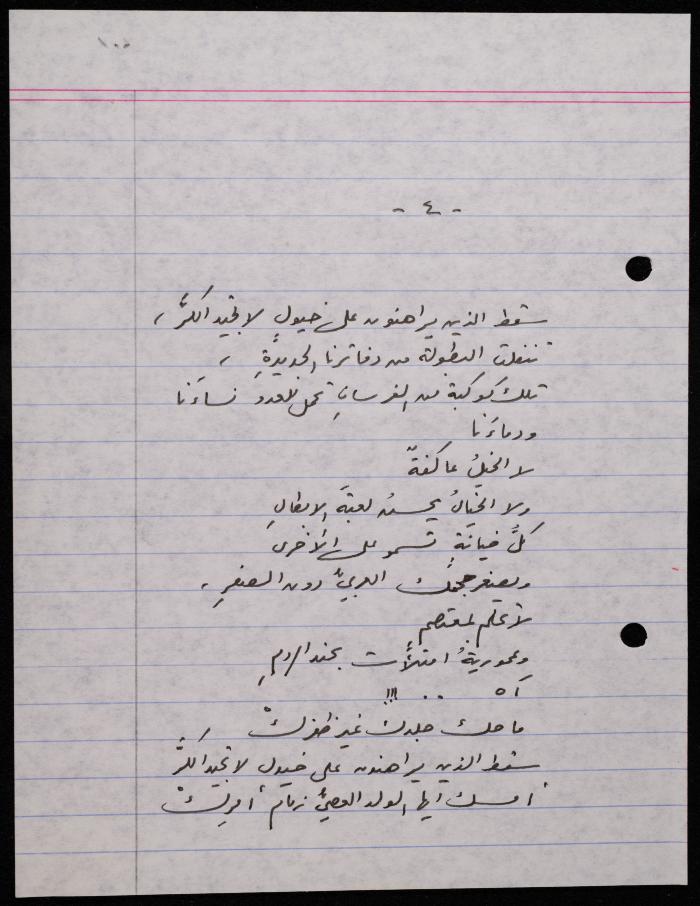 ١٠٠
- ٤ -
سقط الذين يراهنون على خيولٍ لا تجيد الكرَّ ،
تنفلت البطولة من دفاترنا الجديدةِ ،
تلك كوكبة من الفرسانِ تحمل للعدو نساءَنا
ودماءَنا
لا الخيلُ عاكفةٌ
ولا الخيالُ يحسنُ لعبةَ الابطالِ
كلُّ خيانةٍ تسمو على الأخرى
ويصغر حجمك العربيُّ دون الصفرِ ،
لا تحلم بمعتصمٍ
وعموريةُ امتلأت بجند الرومِ
آه . . !!!
ما حك جلدك غير ظفركْ
سقط الذين يراهنون على خيول لا تجيد الكرَّ
أمسك أيها الولد العصيُّ زمام أمركْ